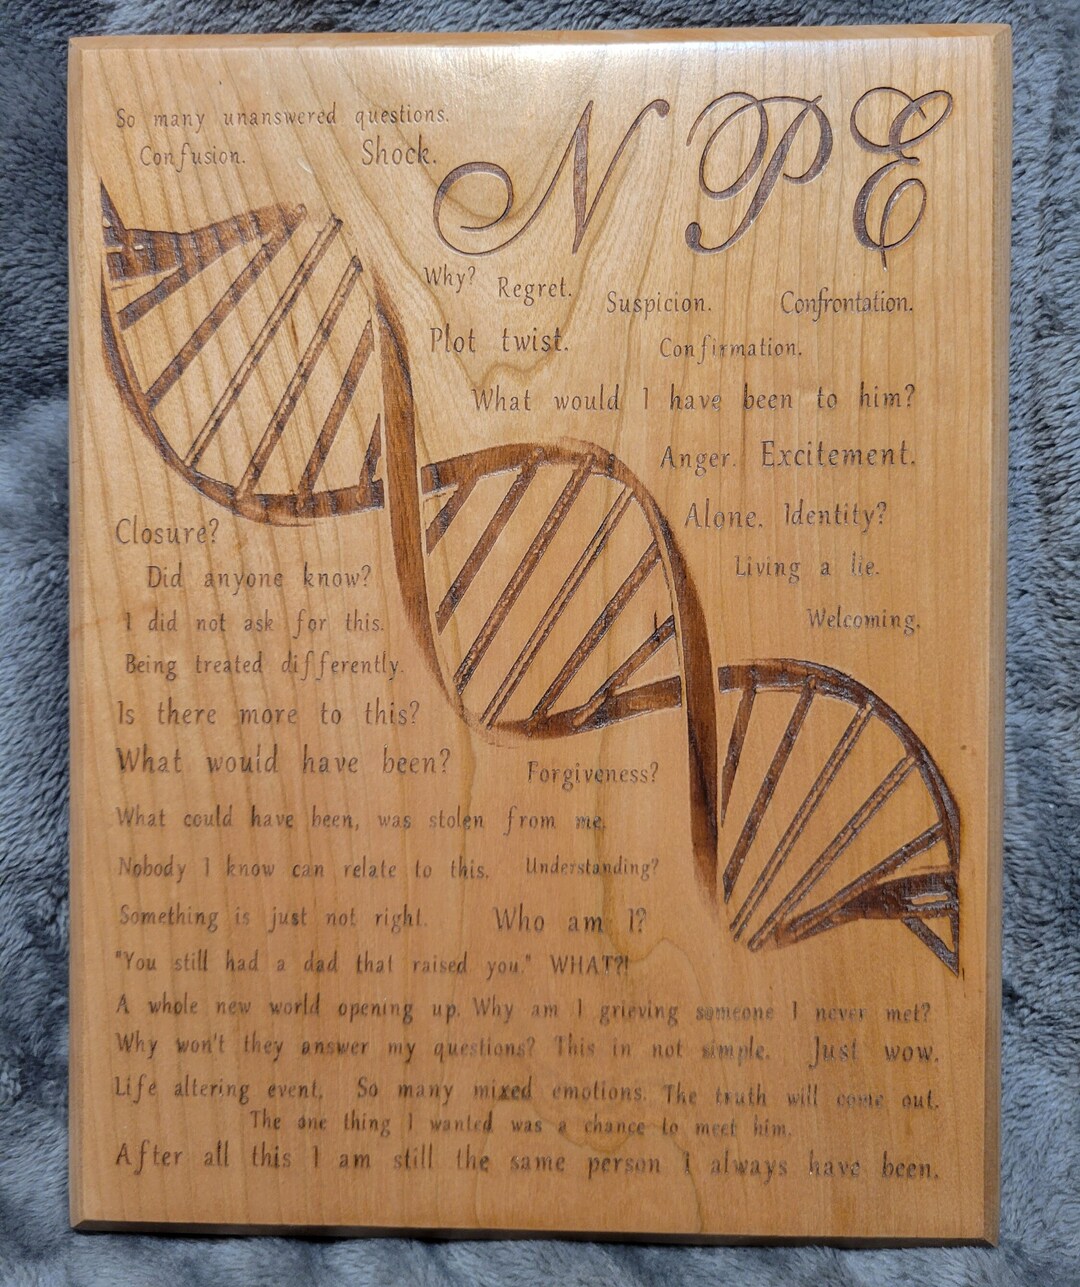 So many unanswered questions.
Confusion. Shock.
NPE
Why? Regret.
Suspicion. Confrontation.
Plot twist. Confirmation.
What would I have been to him?
Anger. Excitement.
Alone. Identity?
Living a lie.
Welcoming.
Closure?
Did anyone know?
I did not ask for this.
Being treated differently.
Is there more to this?
What would have been?
Forgiveness?
What could have been, was stolen from me.
Nobody I know can relate to this. Understanding?
Something is just not right. Who am I?
"You still had a dad that raised you." WHAT?!
A whole new world opening up. Why am I grieving someone I never met?
Why won't they answer my questions? This in not simple. Just wow.
Life altering event. So many mixed emotions. The truth will come out.
The one thing I wanted was a chance to meet him.
After all this I am still the same person I always have been.